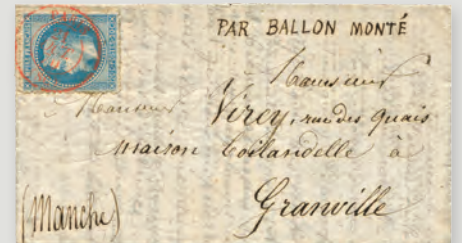 PAR BALLON MONTÉ
Monsieur
Monsieur Virey, rue des Quais
maison Coilandelle à
Granville
(Manche)